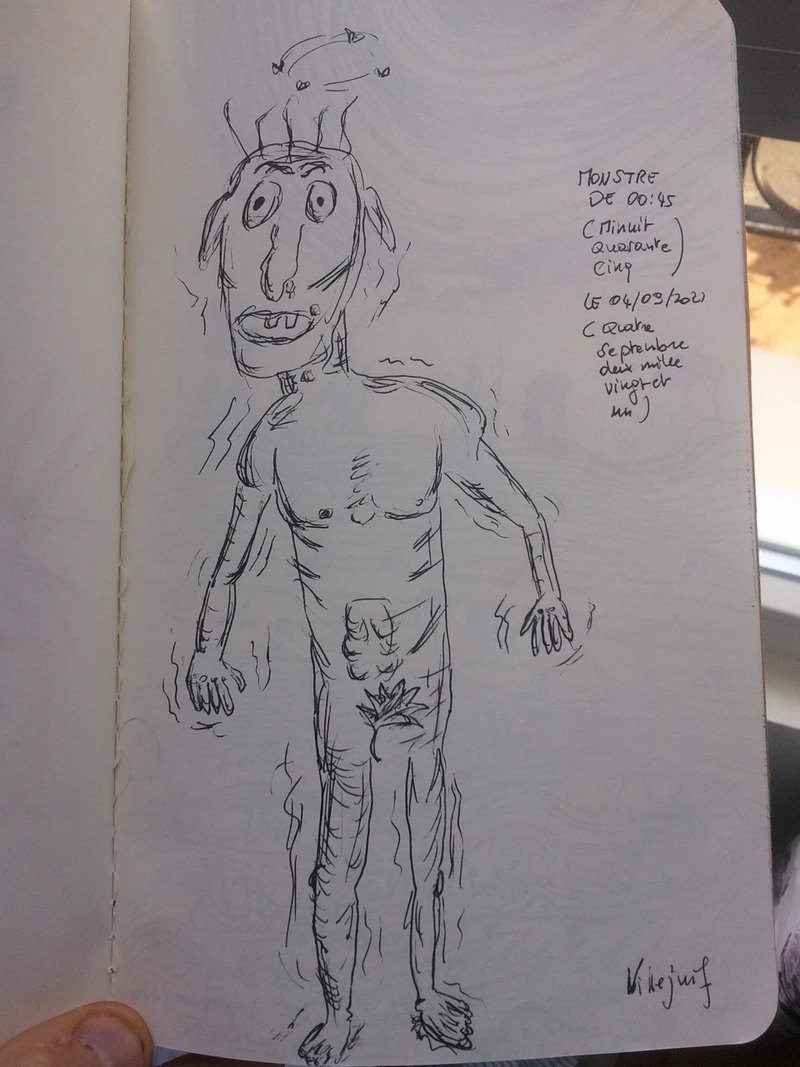 MONSTRE
DE 00:45
(Minuit
Quarante
Cinq)
LE 04/09/2021
(Quatre
Septembre
deux mille
vingt et
un)
Villejuif